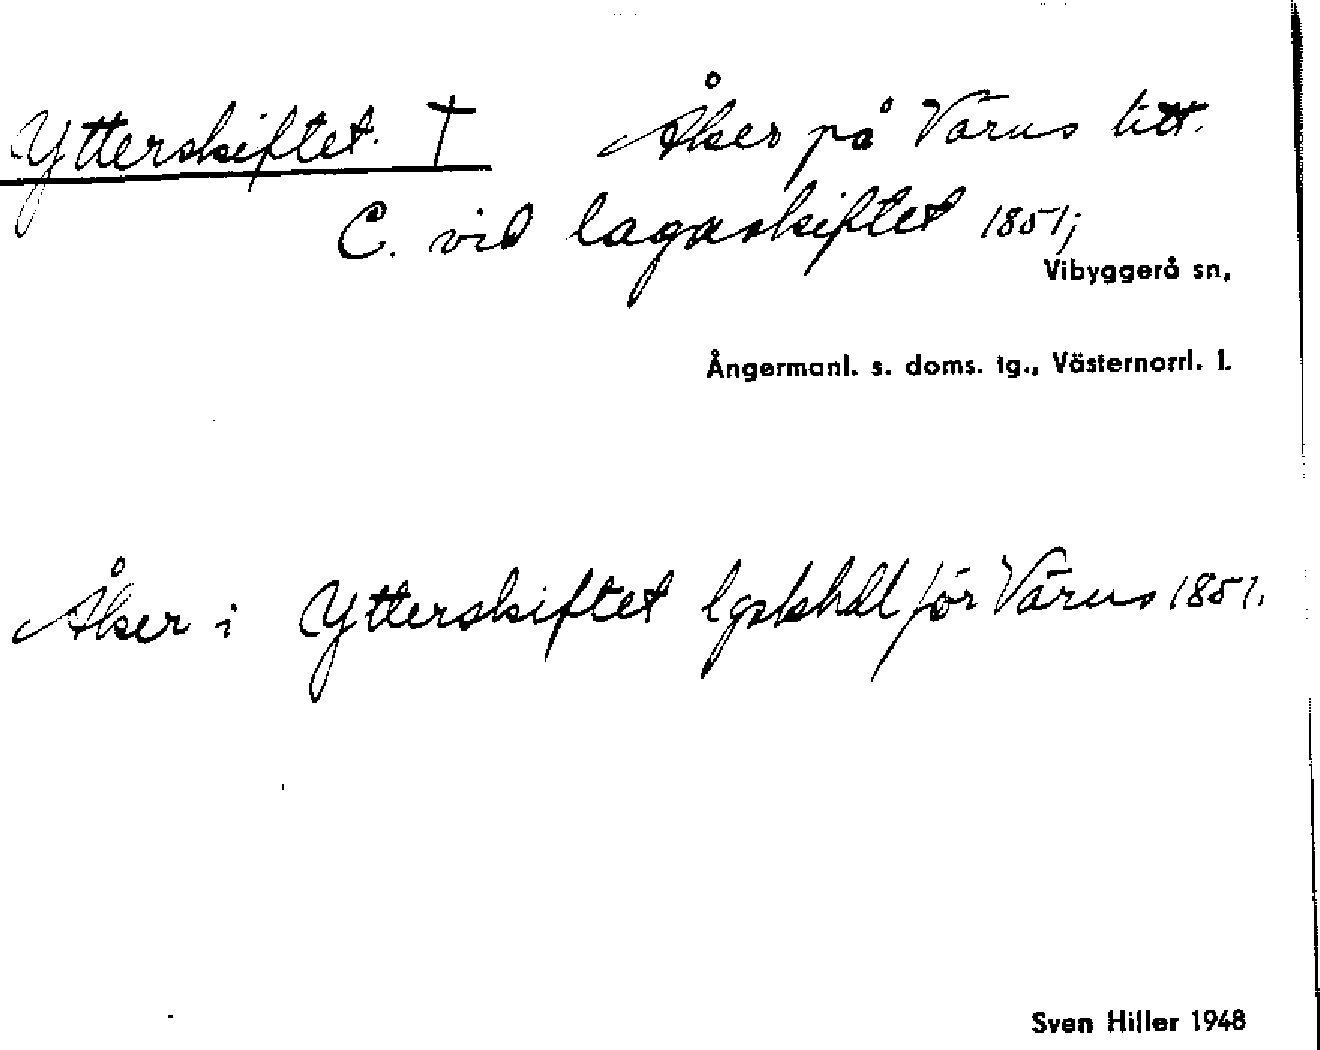 Ytterskiftet. † Åker på Värns litt.
C. vid lagaskiftet 1851;
Vibyggerå sn,
Ångermanl. s. doms. tg., Västernorrl. l.
Åker i Ytterskiftet lgskhdl för Värns 1851.
Sven Hiller 1948